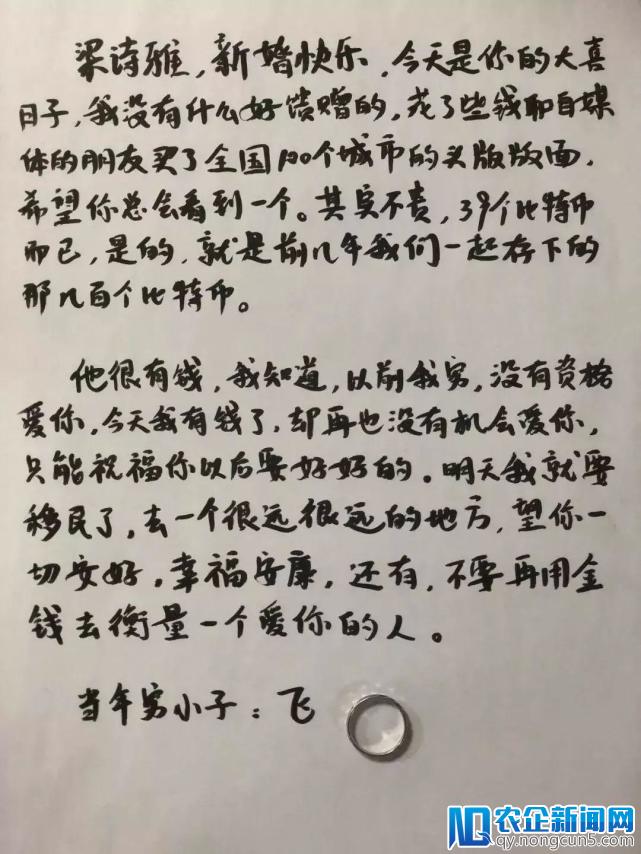 梁诗雅，新婚快乐，今天是你的大喜
日子，我没有什么好馈赠的，花了些钱和自媒
体的朋友买了全国100个城市的头版版面，
希望你总会看到一个。其实不贵，39个比特币
而已，是的，就是前几年我们一起存下的
那几百个比特币。
他很有钱，我知道，以前我穷，没有资格
爱你，今天我有钱了，却再也没有机会爱你，
只能祝福你以后要好好的。明天我就要
移民了，去一个很远很远的地方，望你一
切安好，幸福安康，还有，不要再用金
钱去衡量一个爱你的人。
当年穷小子：飞
农企新闻网
qy.nongcun5.com